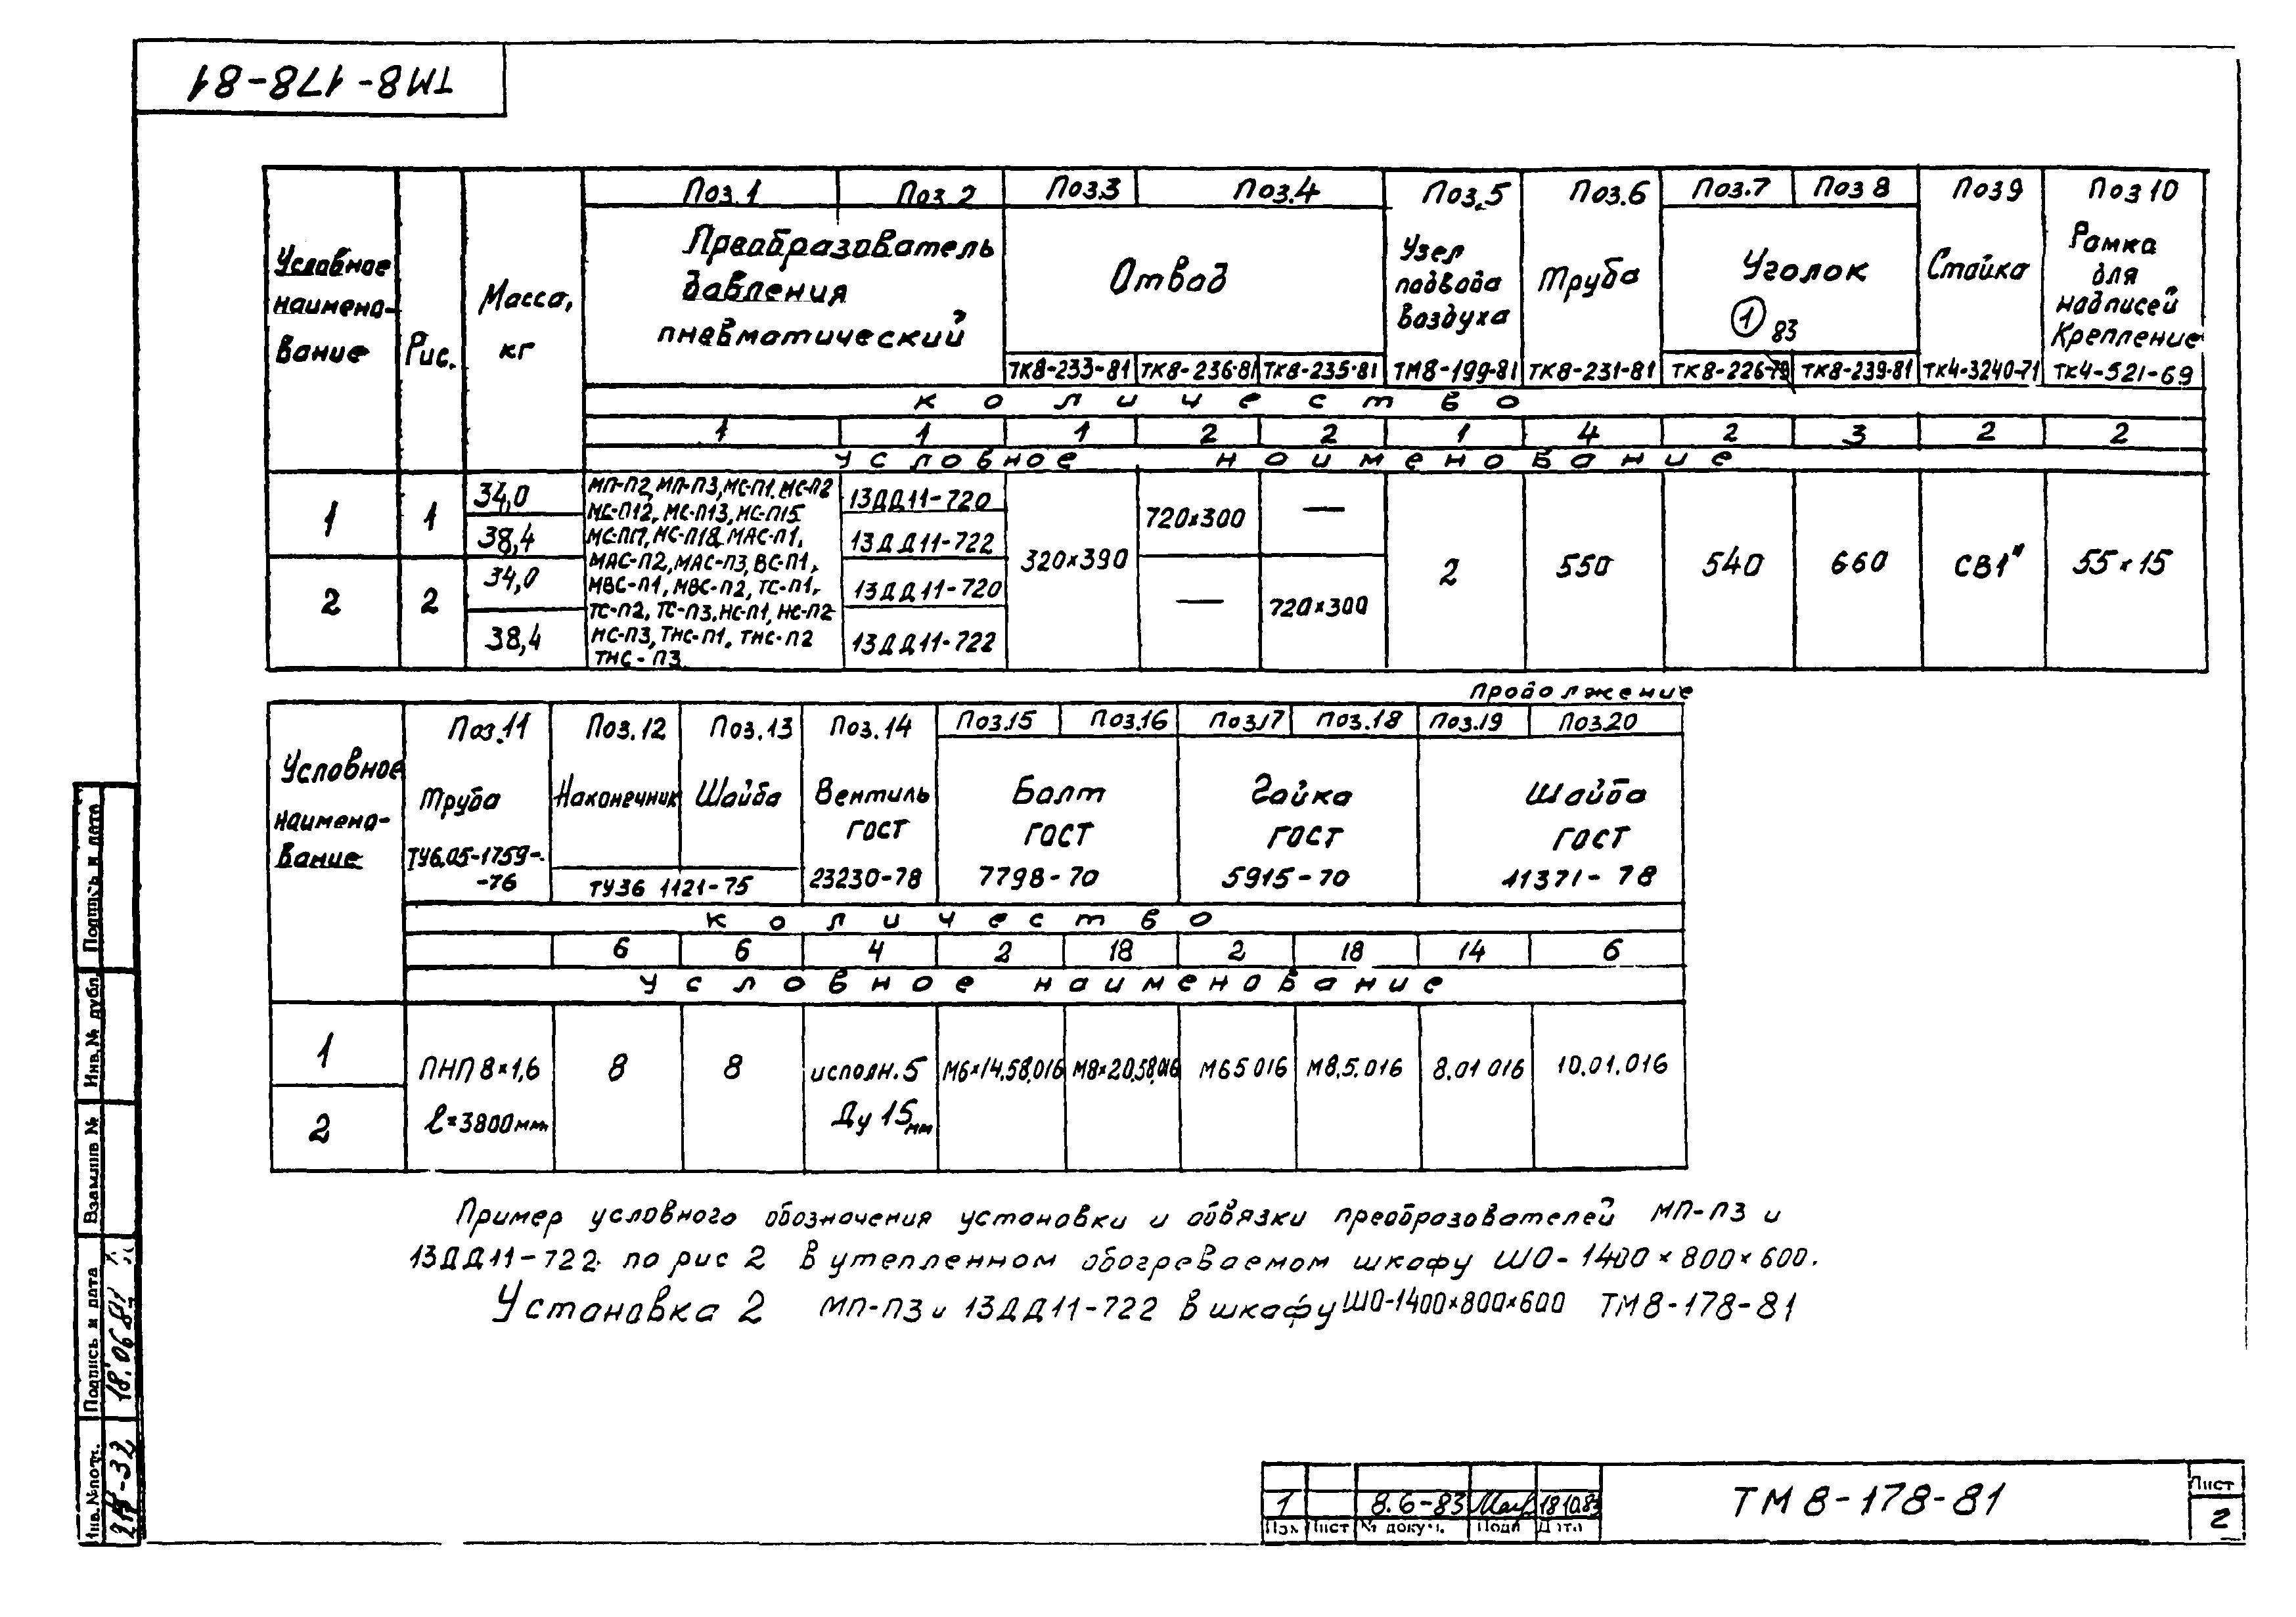 ТМ8-178-81
Условное наименование Рис. Масса, кг Поз.1 Поз.2 Поз.3 Поз.4 Поз.5 Поз.6 Поз.7 Поз 8 Поз9 Поз 10
Преобразователь давления пневматический Отвод Узел подвода воздуха Труба Уголок Стойка Рамка для надписей Крепление
1 83
ТК8-233-81 ТК8-236-81 ТК8-235-81 ТМ8-199-81 ТК8-231-81 ТК8-226-79 ТК8-239-81 ТК4-3240-71 ТК4-521-69
Количество
1 1 1 2 2 1 4 2 3 2 2
Условное наименование
1 1 34,0 13ДД11-720 720×300 —
38,4 13ДД11-722
2 2 34,0 13ДД11-720 — 720×300
38,4 13ДД11-722
МП-П2, МП-П3, МС-П1, МС-П2
МС-П12, МС-П13, МС-П15
МС-П17, МС-П18, МАС-П1,
МАС-П2, МАС-П3, ВС-П1,
МВС-П1, МВС-П2, ТС-П1,
ТС-П2, ТС-П3, НС-П1, НС-П2
НС-П3, ТНС-П1, ТНС-П2
ТНС-П3
320×390 2 550 540 660 СВ1" 55×15
Продолжение
Условное наименование Поз.11 Поз.12 Поз.13 Поз.14 Поз.15 Поз.16 Поз.17 Поз.18 Поз.19 Поз.20
Труба Наконечник Шайба Вентиль Болт Гайка Шайба
ГОСТ ГОСТ ГОСТ ГОСТ
ТУ6.05-1759-
-76 ТУ36 1121-75 23230-78 7798-70 5915-70 11371-78
Количество
6 6 4 2 18 2 18 14 6
Условное наименование
1 ПНП 8×1,6 8 8 исполн. 5 М6×14.58.016 М8×20.58.016 М6 5 016 М8.5.016 8.01 016 10.01.016
2 ℓ=3800мм Ду 15мм
Пример условного обозначения установки и обвязки преобразователей МП-П3 и
13ДД11-722 по рис 2 в утепленном обогреваемом шкафу ШО-1400×800×600.
Установка 2 МП-П3 и 13ДД11-722 в шкафу ШО-1400×800×600 ТМ8-178-81
Подпись и дата
Инв. № дубл.
Взам инв №
Подпись и дата 18.06.81
Инв. № подл.
1 8.6-83 18.10.83
Изм Лист № докум. Подп Дата
ТМ8-178-81
Лист
2